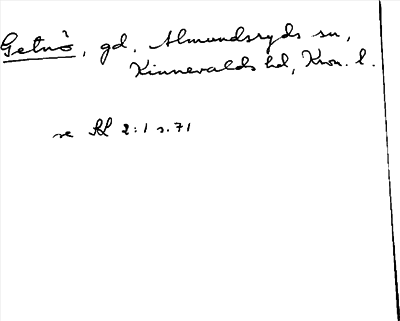 Getnö, gd. Almundsryds sn,
Kinnevalds hd, Kron. l.
se RL 2:1 s. 71